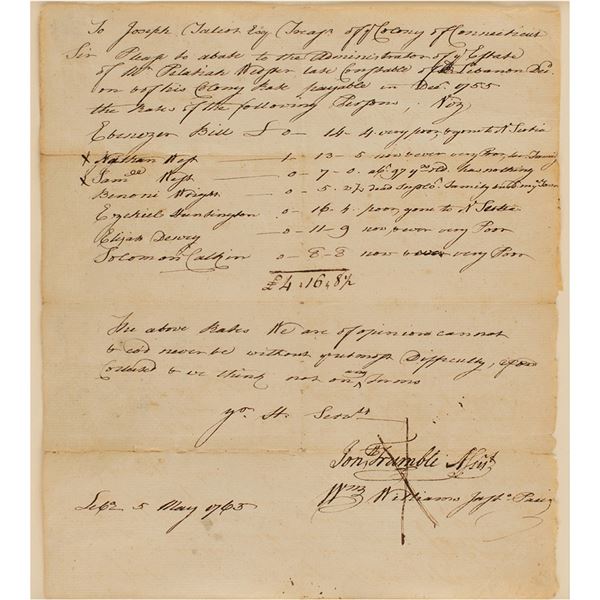 To Joseph Talcot Esq Treasr of ye Colony of Connecticut
Sir Please to abate to the Administrator of ye Estate
of Mr Pelatiah Webster late Constable of Lebanon
on of his Colony Rate payable in Decr 1755
the Rates of the following Persons, Viz
Ebenezer Bill £ 0 - 14 - 4 very poor, & gone to N. Scotia
x Nathan West 1 - 13 - 5 now & ever very Poor
x Samll West 0 - 7 - 0 97 yrs old has nothing
Benoni Wright 0 - 5 - 2½ dead family
Ezekiel Huntington 0 - 16 - 4 poor, gone to N Scotia
Elijah Dewey 0 - 11 - 9 now & ever very Poor
Solomon Calkin 0 - 8 - 8 now & ever very Poor
£4 . 16 . 8½
The above Rates We are of opinion cannot
& co'd never be without utmost Difficulty, if
collected & we think not on any Terms
yr H. Servts
Jonth Trumble Assist
Wm Williams Justs Pacis
Lebn 5 May 1765